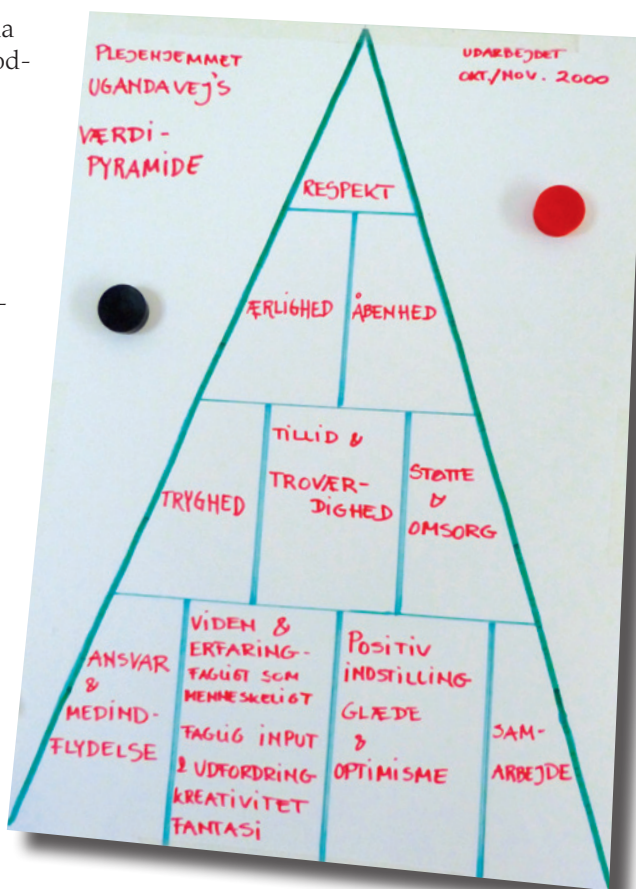 na
od-
-
PLEJEHJEMMET
UGANDAVEJ'S
VÆRDI-
PYRAMIDE
UDARBEJDET
OKT./NOV. 2000
RESPEKT
ÆRLIGHED
ÅBENHED
TRYGHED
TILLID &
TROVÆR-
DIGHED
STØTTE
&
OMSORG
ANSVAR
&
MEDIND-
FLYDELSE
VIDEN &
ERFARING-
FAGLIGT SOM
MENNESKELIGT
FAGLIG INPUT
& UDFORDRING
KREATIVITET
FANTASI
POSITIV
INDSTILLING
GLÆDE
&
OPTIMISME
SAM-
ARBEJDE